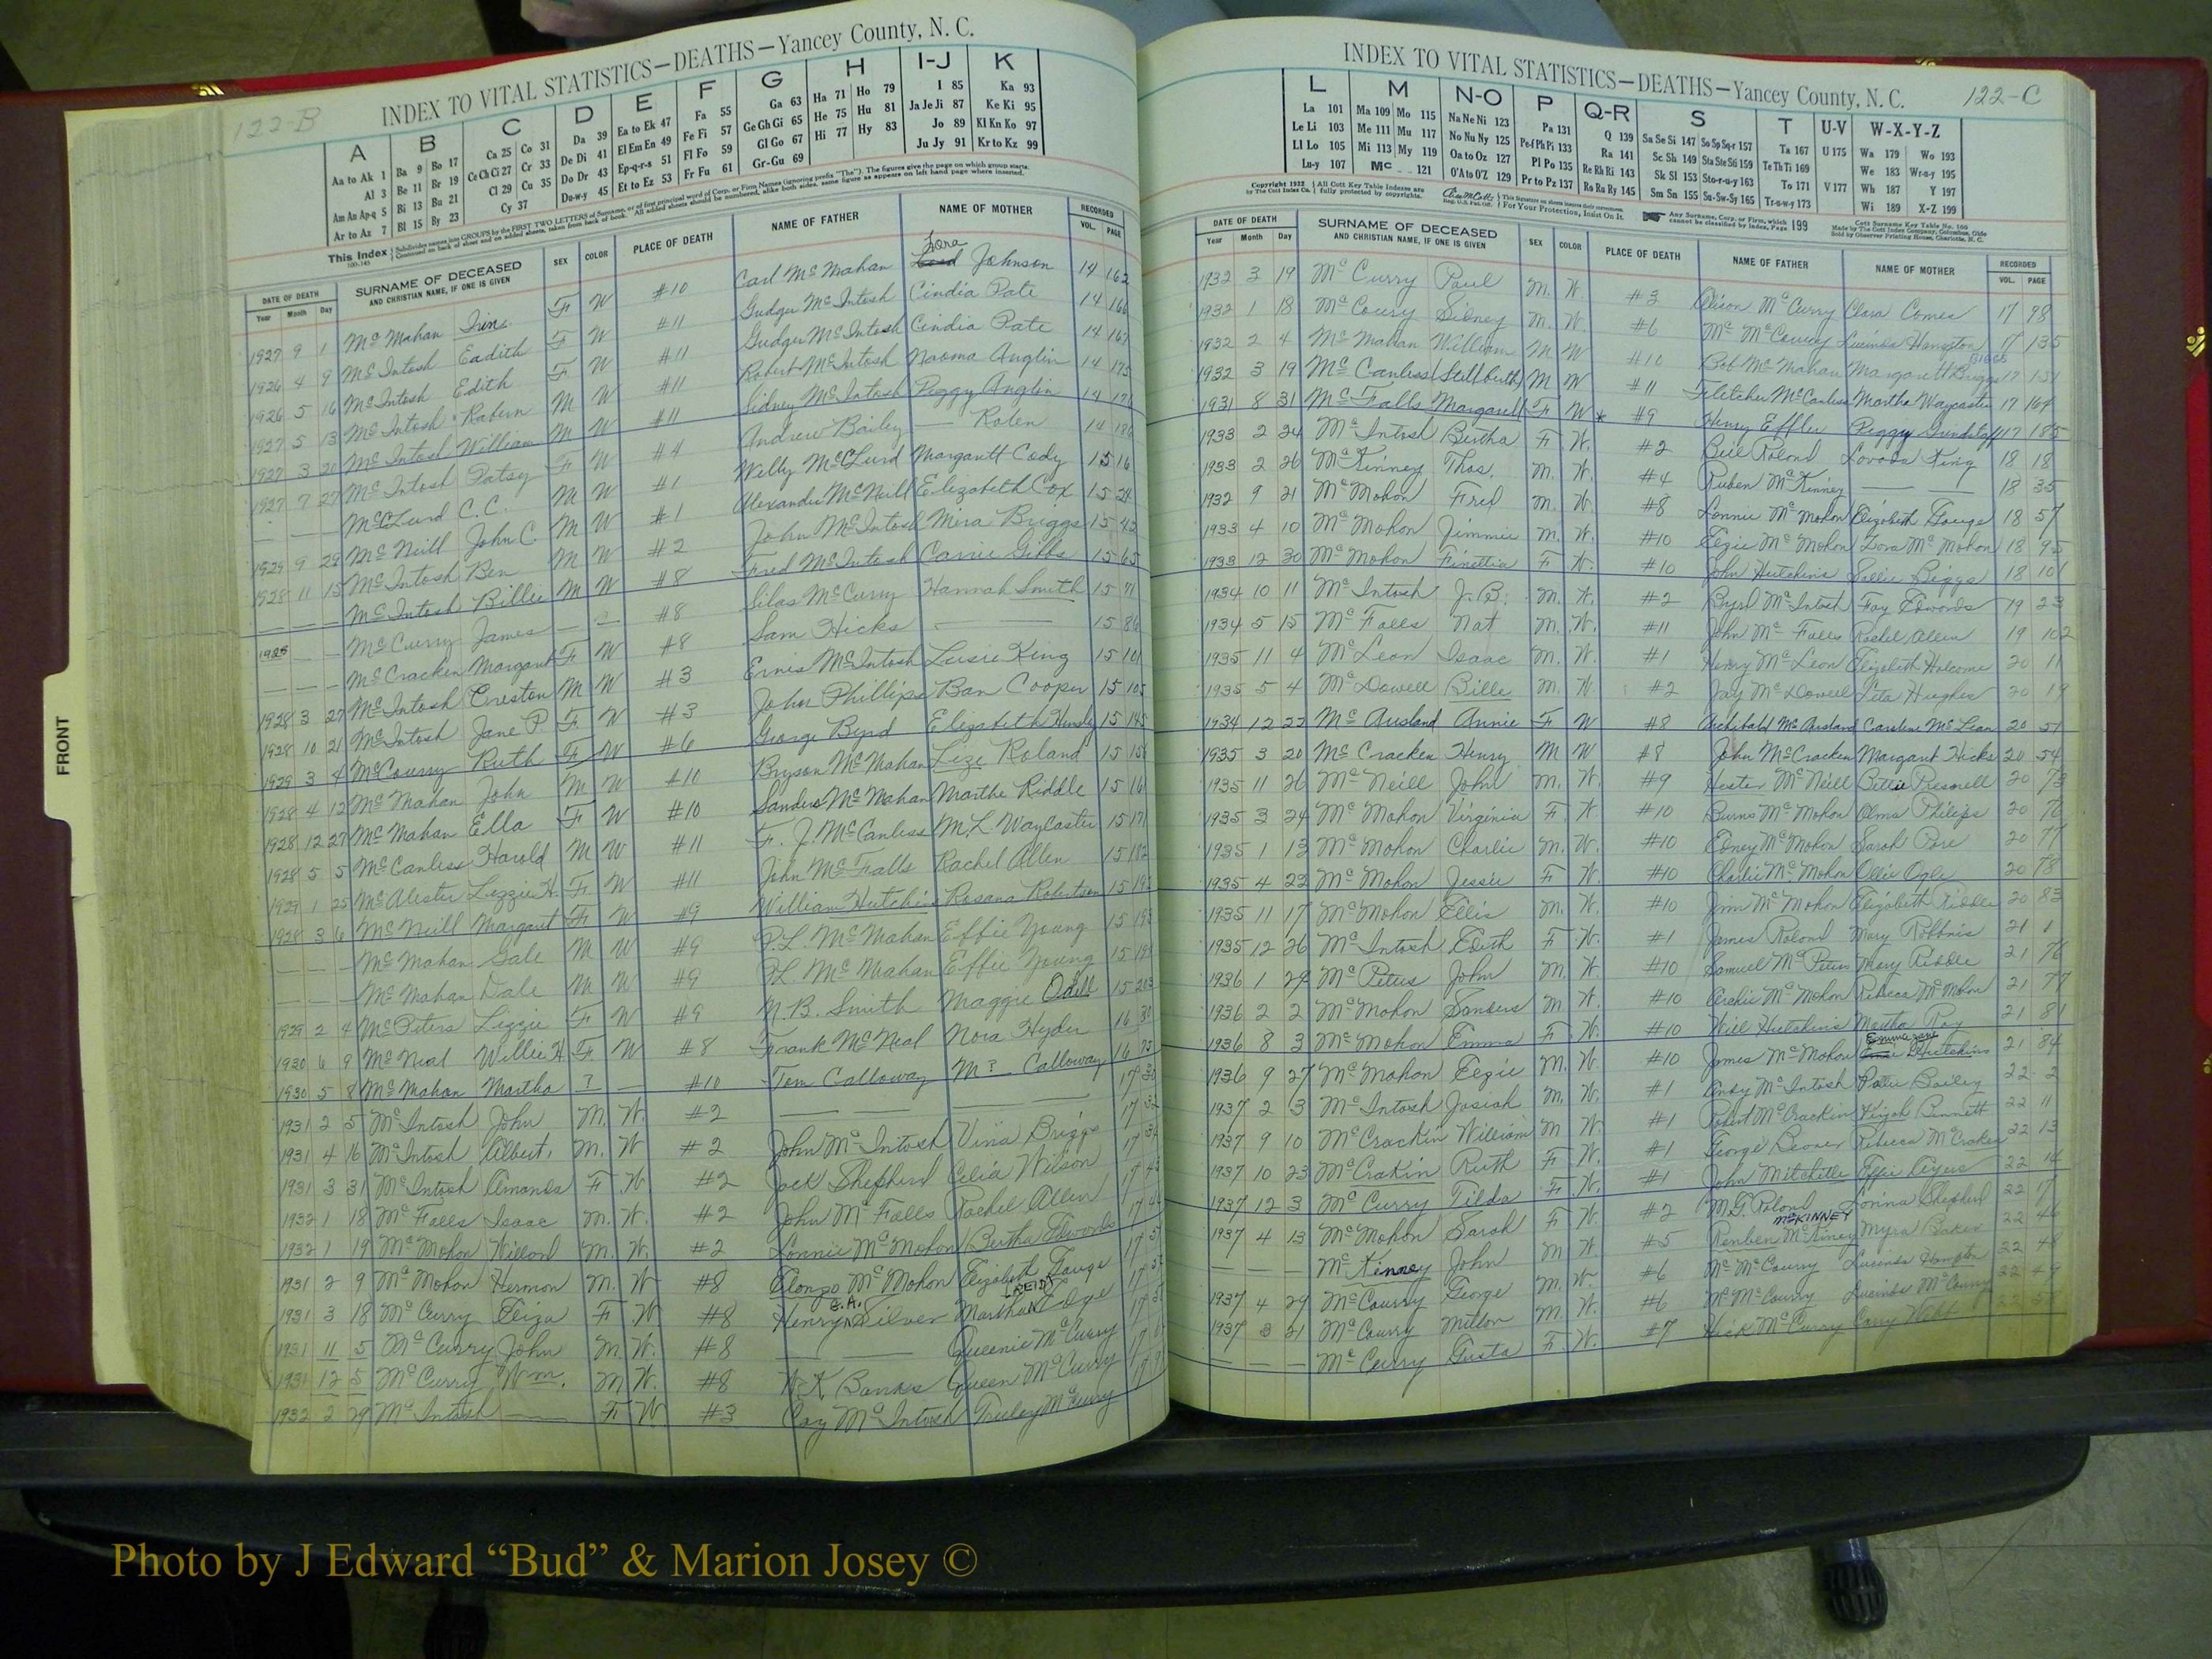 122-B
INDEX TO VITAL STATISTICS—DEATHS—Yancey County, N. C.
A B C D E F G H I-J K
Aa to Ak 1 Ba 9 Bo 17 Ca 25 Co 31 Da 39 Ea to Ek 47 Fa 55 Ga 63 Ha 71 Ho 79 I 85 Ka 93
Al 3 Be 11 Br 19 Ce Ch Ci 27 Cr 33 De Di 41 El Em En 49 Fe Fi 57 Ge Gh Gi 65 He 75 Hu 81 Ja Je Ji 87 Ke Ki 95
Am An Ap-q 5 Bi 13 Bu 21 Cl 29 Cu 35 Do Dr 43 Ep-q-r-s 51 Fl Fo 59 Gl Go 67 Hi 77 Hy 83 Jo 89 Kl Kn Ko 97
Ar to Az 7 Bl 15 By 23 Cy 37 Du-w-y 45 Et to Ez 53 Fr Fu 61 Gr-Gu 69 Ju Jy 91 Kr to Kz 99
This Index
DATE OF DEATH SURNAME OF DECEASED AND CHRISTIAN NAME, IF ONE IS GIVEN SEX COLOR PLACE OF DEATH NAME OF FATHER NAME OF MOTHER RECORDED
Year Month Day VOL. PAGE
1927 9 1 McMahan F W #10 Carl McMahan Zora Johnson 14 162
1926 4 9 McIntosh Eadith F W #11 Gudger McIntosh Cindia Pate 14 166
1926 5 16 McIntosh Edith F W #11 Gudger McIntosh Cindia Pate 14 167
1927 5 13 McIntosh Rabern M W #11 Robert McIntosh Naoma Anglin 14 175
1927 3 20 McIntosh William M W #11 Sidney McIntosh Peggy Anglin 14
1927 7 27 McIntosh Patsy F W #4 Andrew Bailey — Rolen 14
— — — McClurd C. C. M W #1 Welly McClurd Margarett Cody 15 16
1929 9 29 McNeill John C. M W #1 Alexander McNeill Elizabeth Cox 15 24
1928 11 15 McIntosh Ben M W #2 John McIntosh Mira Briggs 15 42
— — — McIntosh Billie M W #8 Fred McIntosh Carrie Gibbs 15 65
1928 — — McCurry James — — #8 Silas McCurry Hannah Smith 15 71
— — — McCracken Margaret F W #8 Sam Hicks — 15 86
1928 3 27 McIntosh Creston M W #3 Ernis McIntosh Lusie King 15 101
1928 10 21 McIntosh Jane P F W #3 John Phillips Ban Cooper 15 105
1929 3 4 McCourry Ruth F W #6 George Byrd Elizabeth Hensly 15 145
1928 4 12 McMahan John M W #10 Bryson McMahan Lize Roland 15
1928 12 27 McMahan Ella F W #10 Sanders McMahan Marthe Riddle 15
1928 5 5 McCanless Harold M W #11 F. J. McCanless M. L. Waycaster 15
1929 1 25 McAlester Lizzie H. F W #11 John McFalls Rachel Allen 15 182
1928 3 6 McNeill Margaret F W #9 William Hutchins Rosana Robertson 15
— — — McMahan Gale M W #9 P. L. McMahan Effie Young 15
— — — McMahan Dale M W #9 P. L. McMahan Effie Young 15
1929 2 4 McPeters Lizzie F W #9 N. B. Smith Maggie Odell 15 203
1930 6 9 McNeal Willie H F W #8 Frank McNeal Nora Hyder 16
1930 5 8 McMahan Martha ? — #10 Tom Calloway M? Calloway 16
1931 2 5 McIntosh John M. W. #2 — — 17
1931 4 16 McIntosh Albert, M. W #2 John McIntosh Vina Briggs 17
1931 3 31 McIntosh Amanda F W #2 Jack Shepherd Celia Wilson 17
1932 1 18 McFalls Isaac M. W. #2 John McFalls Rachel Allen 17
1932 1 19 McMohon Willard M. W. #2 Lonnie McMohon Bertha Edwards 17
1931 2 9 McMohon Hermon M. W #8 Elonzo McMohon Elizabeth Gouge 17
1931 3 18 McCurry Eliza F W #8 Henry G.A. Silver Martha 17
1931 11 5 McCurry John M. W. #8 — — Queenie McCurry 17
1931 12 5 McCurry Wm. M W. #8 W. K Banks Queen McCurry 17
1932 2 29 McIntosh — F W #3 Coy McIntosh McCurry
FRONT
122-C
INDEX TO VITAL STATISTICS—DEATHS—Yancey County, N. C.
L M N-O P Q-R S T U-V W-X-Y-Z
La 101 Ma 109 Mo 115 Na Ne Ni 123 Pa 131 Q 139 Sa Se Si 147 So Sp Sq-r 157 Ta 167 U 175 Wa 179 Wo 193
Le Li 103 Me 111 Mu 117 No Nu Ny 125 Pe-f Ph Pi 133 Ra 141 Sc Sh 149 Sta Ste Sti 159 Te Th Ti 169 We 183 Wr-u-y 195
Ll Lo 105 Mi 113 My 119 Oa to Oz 127 Pl Po 135 Re Rh Ri 143 Sk Sl 153 Sto-r-u-y 163 To 171 V 177 Wh 187 Y 197
Lu-y 107 Mc 121 O'A to O'Z 129 Pr to Pz 137 Ro Ru Ry 145 Sm Sn 155 Su-Sw-Sy 165 Tr-u-w-y 173 Wi 189 X-Z 199
Copyright 1922 by The Cott Index Co. All Cott Key Table Indexes are fully protected by copyrights. For Your Protection, Insist On It. Any Surname, Corp. or Firm, which cannot be classified by Index, Page 199
DATE OF DEATH SURNAME OF DECEASED AND CHRISTIAN NAME, IF ONE IS GIVEN SEX COLOR PLACE OF DEATH NAME OF FATHER NAME OF MOTHER RECORDED
Year Month Day VOL. PAGE
1932 3 19 McCurry Paul M. W. #3 McCurry Clara 17 98
1932 1 18 McCoury Sidney M. W. #6 Mc McCoury Lucinda 17 135
1932 2 4 McMahan William M W #10 Bob McMahan Margarett Briggs 17 151
1932 3 19 McCanless (Stillbirth) M W #11 Fletcher McCanless Martha Waycaster 17 164
1931 8 31 McFalls Margaret F W * #9 Henry Effler Peggy Grindstaff 17 185
1933 2 24 McIntosh Bertha F W. #2 Bill Roland King 18 18
1933 2 26 McKinney Thos. M. W. #4 Ruben McKinney — — 18 35
1932 9 21 McMohon Fred M. W. #8 Lonnie McMohon Elizabeth Gouge 18 57
1933 4 10 McMohon Jimmie M. W. #10 McMohon Zora McMohon 18 95
1933 12 30 McMohon Finettia F W. #10 John Hutchins Sallie Biggs 18 101
1934 10 11 McIntosh J. B. M. W. #2 Byrd McIntosh Fay Edwards 19 23
1934 5 15 McFalls Nat M. W. #11 John McFalls Rachel Allen 19 102
1935 11 4 McLean Isaac M. W. #1 Henry McLean Elizabeth Holcome 20 11
1935 5 4 McDowell Bille M. W. #2 Jay McDowell Leta Hughes 20 19
1934 12 22 McAusland Annie F W #8 Archibald McAusland Caroline McLean 20 51
1935 3 20 McCracken Henry M W #8 John McCracken Margaret Hicks 20 54
1935 11 26 McNeill John M. W. #9 Hester McNeill Presnell 20 73
1935 3 24 McMohon Virginia F W. #10 Burns McMohon Alma Philips 20 76
1935 1 13 McMohon Charlie M. W. #10 Edney McMohon Sarah 20 77
1935 4 22 McMohon Jessie F W. #10 Charlie McMohon Ollie Ogle 20 78
1935 11 17 McMohon Ellis M. W. #10 Jim McMohon Elizabeth Riddle 20 83
1935 12 26 McIntosh Edith F W. #1 James Roland Mary Robbins 21 1
1936 1 29 McPeters John M. W. #10 Samuel McPeters Mary Riddle 21 76
1936 2 2 McMohon Sanders M W. #10 Archie McMohon Rebeca McMohon 21 77
1936 8 3 McMohon Emma F W. #10 Will Hutchins Martha Ray 21 81
1936 9 27 McMahon M. W. #10 James McMohon Hutchins 21 84
1937 2 3 McIntosh Josiah M. W. #1 Andy McIntosh Bailey 22 2
1937 9 10 McCrackin William M W. #1 Robert McCrackin Bennett 22 11
1937 10 23 McCrakin Ruth F W. #1 George Rebecca McCraken 22 13
1937 12 3 McCurry Tilda F W. #1 John Mitchelle Effie Ayers 22 16
1937 4 13 McMohon Sarah F W. #2 M. G. Roland Shepherd 22 17
— — — McKinney John M W. #5 Reuben McKinney MCKINNEY Myra Parker 22 46
1937 4 29 McCourry George M. W. #6 Mc McCourry Lucinda Hampton 22 48
1937 3 21 McCourry Milton M. W. #6 Mc McCourry Lucinda McCourry 22 49
— — — McCurry Gusta F W. #7 McCurry Webb
Photo by J Edward “Bud” & Marion Josey ©